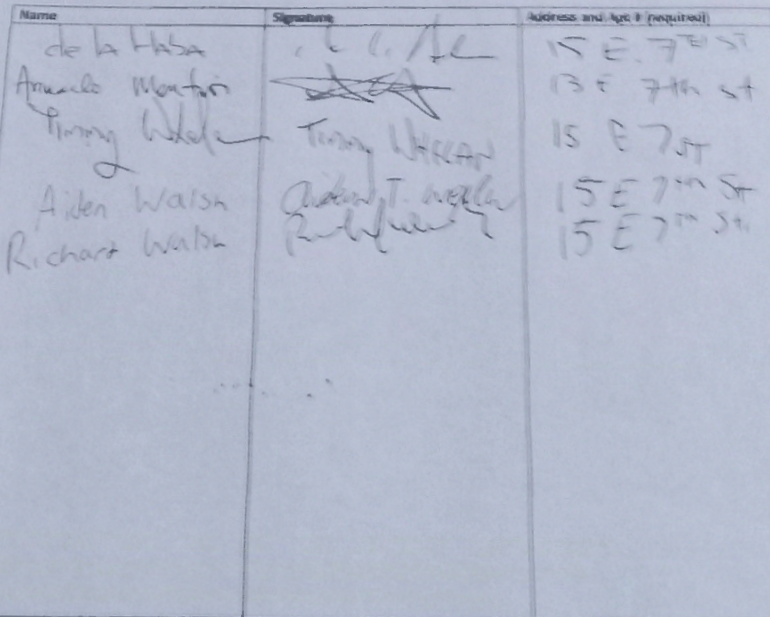 Name Signature Address and Apt # (required)
de la Haba 15 E. 7TH ST
13 E 7th st
Timmy Timmy 15 E 7 ST
Aiden Walsh Aiden T. Walsh 15 E 7th St
Richard Walsh 15 E 7th St.